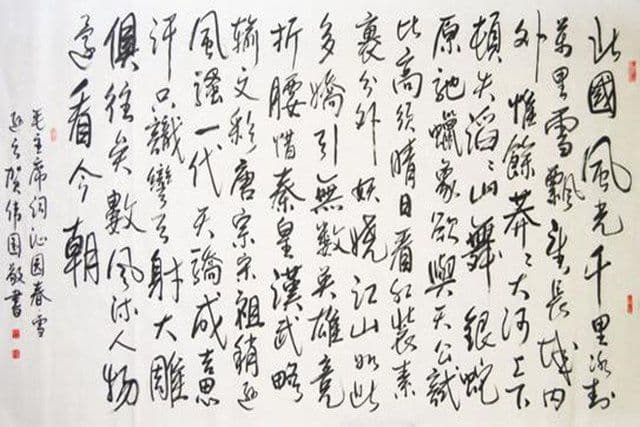 北國風光千里冰封
萬里雪飄望長城内
外惟餘莽〻大河上下
頓失滔〻山舞銀蛇
原馳蠟象欲與天公試
比高須晴日看红裝素
裹分外妖嬈江山如此
多嬌引無數英雄竞
折腰惜秦皇漢武略
输文彩唐宗宋祖稍遜
風騷一代天驕成吉思
汗只識彎弓射大雕
俱往矣數風流人物
還看今朝
毛主席词沁园春雪
贺伟国敬書